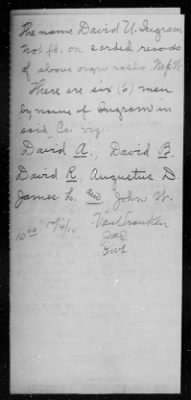 The name David U. Ingram
not fd. on carded records
of above orgn
There are six (6) men
by name of Ingram in
said Co. viz:
David A., David B.
David R., Augustus D.
James L. and John W.
Van
10 00